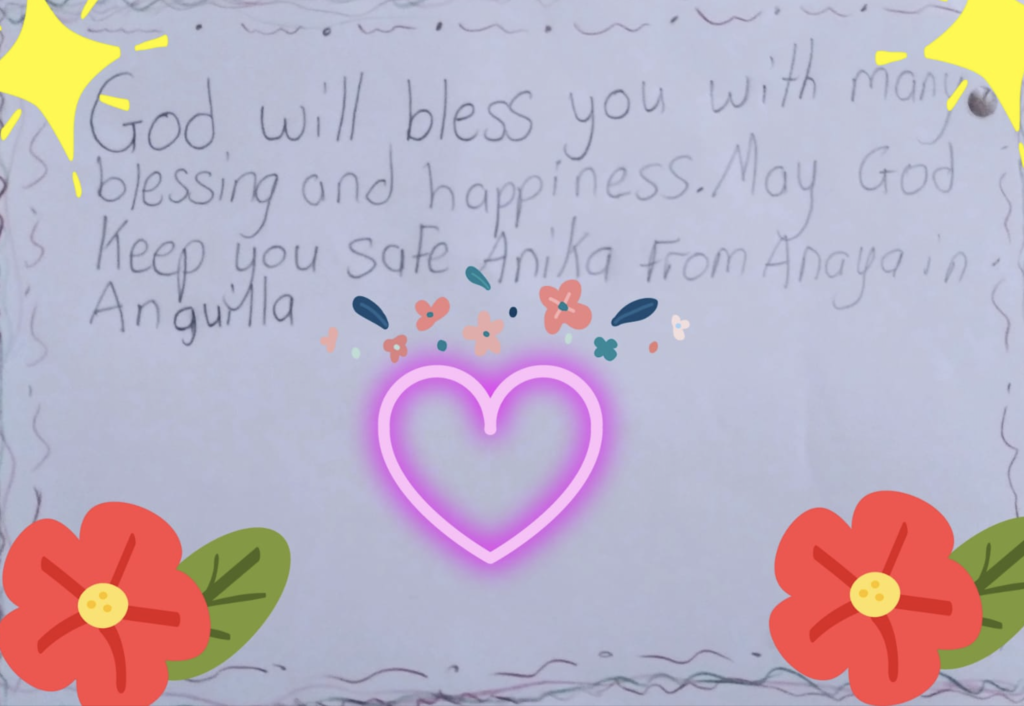 God will bless you with many
blessing and happiness. May God
Keep you safe Anika From Anaya in
Anguilla